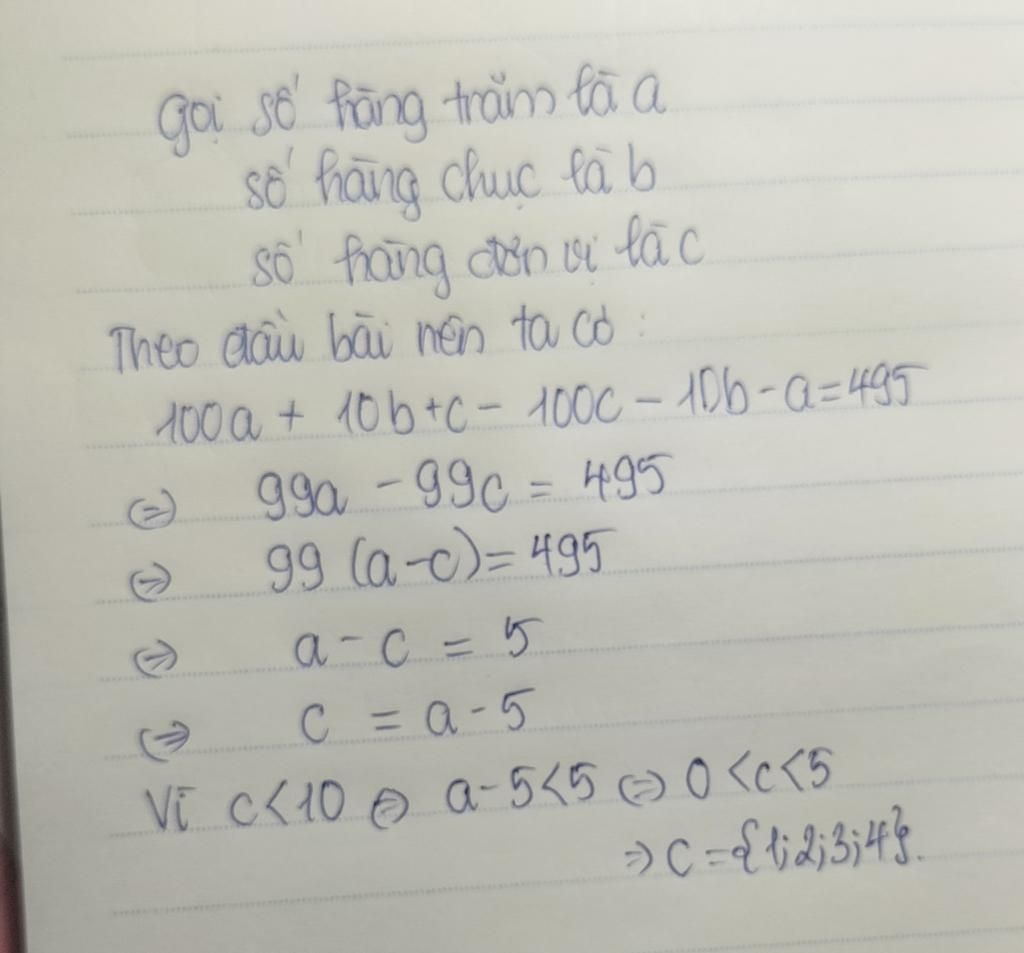 Gọi số hàng trăm là a
số hàng chục là b
số hàng đơn vị là c
Theo đầu bài nên ta có :
100a + 10b + c - 100c - 10b - a = 495
⇔ 99a - 99c = 495
⇔ 99 (a - c) = 495
⇔ a - c = 5
⇔ c = a - 5
Vì c < 10 ⇔ a - 5 < 5 ⇔ 0 < c < 5
⇒ c = {1; 2; 3; 4}.